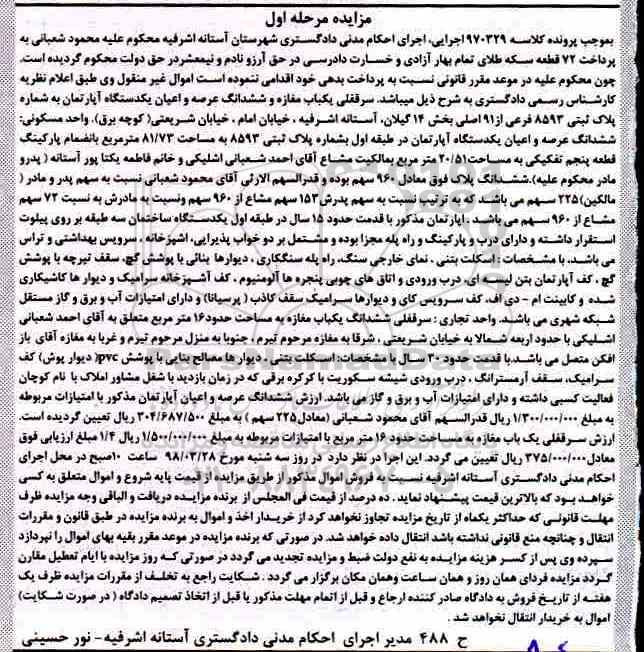 مزایده مرحله اول
بموجب پرونده کلاسه ۹۷۰۳۲۹ اجرایی، اجرای احکام مدنی دادگستری شهرستان آستانه اشرفیه محکوم علیه محمود شعبانی به
پرداخت ۷۲ قطعه سکه طلای تمام بهار آزادی و خسارت دادرسی در حق آرزو نادم و نیمعشر در حق دولت محکوم گردیده است.
چون محکوم علیه در موعد مقرر قانونی نسبت به پرداخت بدهی خود اقدامی ننموده است اموال غیر منقول وی طبق اعلام نظریه
کارشناس رسمی دادگستری به شرح ذیل میباشد. سرقفلی یکباب مغازه و ششدانگ عرصه و اعیان یکدستگاه آپارتمان به شماره
پلاک ثبتی ۸۵۹۳ فرعی از ۹۱ اصلی بخش ۱۴ گیلان، آستانه اشرفیه ، خیابان امام ، خیابان شریعتی( کوچه برق). واحد مسکونی:
ششدانگ عرصه و اعیان یکدستگاه آپارتمان در طبقه اول بشماره پلاک ثبتی ۸۵۹۳ به مساحت ۸۱/۷۳ مترمربع بانضمام پارکینگ
قطعه پنجم تفکیکی به مساحت ۲۰/۵۱ متر مربع بمالکیت مشاع آقای احمد شعبانی اشلیکی و خانم فاطمه یکتا پور آستانه ( پدر و
مادر محکوم علیه).ششدانگ پلاک فوق معادل ۹۶۰ سهم بوده و قدرالسهم الارثی آقای محمود شعبانی نسبت به سهم پدر و مادر (
مالکین) ۲۲۵ سهم می باشد که به ترتیب نسبت به سهم پدرش ۱۵۳ سهم مشاع از ۹۶۰ سهم ونسبت به مادرش به نسبت ۷۲ سهم
مشاع از ۹۶۰ سهم می باشد . آپارتمان مذکور با قدمت حدود ۱۵ سال در طبقه اول یکدستگاه ساختمان سه طبقه بر روی پیلوت
استقرار داشته و دارای درب و پارکینگ و راه پله مجزا بوده و مشتمل بر دو خواب پذیرایی، اشپزخانه ، سرویس بهداشتی و تراس
می باشد. با مشخصات : اسکلت بتنی ، نمای خارجی سنگ، راه پله سنگکاری ، دیوارها بنائی با پوشش گچ، سقف تیرچه با پوشش
گچ ، کف آپارتمان بتن لیسه ای، درب ورودی و اتاق های چوبی پنجره ها آلومنیوم ، کف آشپزخانه سرامیک و دیوار ها کاشیکاری
شده و کابینت ام - دی اف، کف سرویس کای و دیوارها سرامیک سقف کاذب ( پرسیانا) و دارای امتیازات آب و برق و گاز مستقل
شبکه شهری می باشد. واحد تجاری : سرقفلی ششدانگ یکباب مغازه به مساحت حدود ۱۶ متر مربع متعلق به آقای احمد شعبانی
اشلیکی با حدود اربعه شمالا به خیابان شریعتی ، شرقا به مغازه مرحوم تیرم ، جنوبا به منزل مرحوم تیرم و غربا به مغازه آقای باز
افکن متصل می باشد.با قدمت حدود ۳۰ سال با مشخصات: اسکلت بتنی ، دیوار ها مصالح بنایی با پوشش pvc( دیوار پوش) کف
سرامیک، سقف آرمسترانگ ، درب ورودی شیشه سکوریت با کرکره برقی که در زمان بازدید با شغل مشاور املاک با نام کوچان
فعالیت کسبی داشته و دارای امتیازات آب و برق و گاز می باشد. ارزش ششدانگ عرصه و اعیان آپارتمان مذکور با امتیازات مربوطه
به مبلغ ۱/۳۰۰/۰۰۰/۰۰۰ ریال قدرالسهم آقای محمود شعبانی (معادل ۲۲۵ سهم ) به مبلغ ۳۰۴/۶۸۷/۵۰۰ ریال تعیین گردیده است.
ارزش سرقفلی یک باب مغازه به مساحت حدود ۱۶ متر مربع با امتیازات مربوطه به مبلغ ۱/۵۰۰/۰۰۰/۰۰۰ ریال ۱/۴ مبلغ ارزیابی فوق
معادل ۳۷۵/۰۰۰/۰۰۰ ریال تعیین می گردد. این اجرا در نظر دارد در روز سه شنبه مورخ ۹۸/۰۳/۲۸ ساعت ۱۰صبح در محل اجرای
احکام مدنی دادگستری آستانه اشرفیه نسبت به فروش اموال مذکور از طریق مزایده از قیمت پایه شروع و اموال متعلق به کسی
خواهد بود که بالاترین قیمت پیشنهاد نماید . ده درصد از قیمت فی المجلس از برنده مزایده دریافت و الباقی وجه مزایده ظرف
مهلت قانونی که حداکثر یکماه از تاریخ مزایده تجاوز نخواهد کرد از خریدار اخذ و اموال به برنده مزایده در طبق قانون و مقررات
انتقال و چنانچه منع قانونی نداشته باشد انتقال داده خواهد شد. در صورتی که برنده مزایده در موعد مقرر بقیه بهای اموال را نپردازد
سپرده وی پس از کسر هزینه مزایده به نفع دولت ضبط و مزایده تجدید می گردد در صورتی که روز مزایده با ایام تعطیل مقارن
گردد مزایده فردای همان روز و همان ساعت وهمان مکان برگزار می گردد . شکایت راجع به تخلف از مقررات مزایده ظرف یک
هفته از تاریخ فروش به دادگاه صادر کننده ارجاع و قبل از اتمام مهلت مذکور یا قبل از اتخاذ تصمیم دادگاه ( در صورت شکایت)
اموال به خریدار انتقال نخواهد شد .
ح ۴۸۸ مدیر اجرای احکام مدنی دادگستری آستانه اشرفیه- نور حسینی